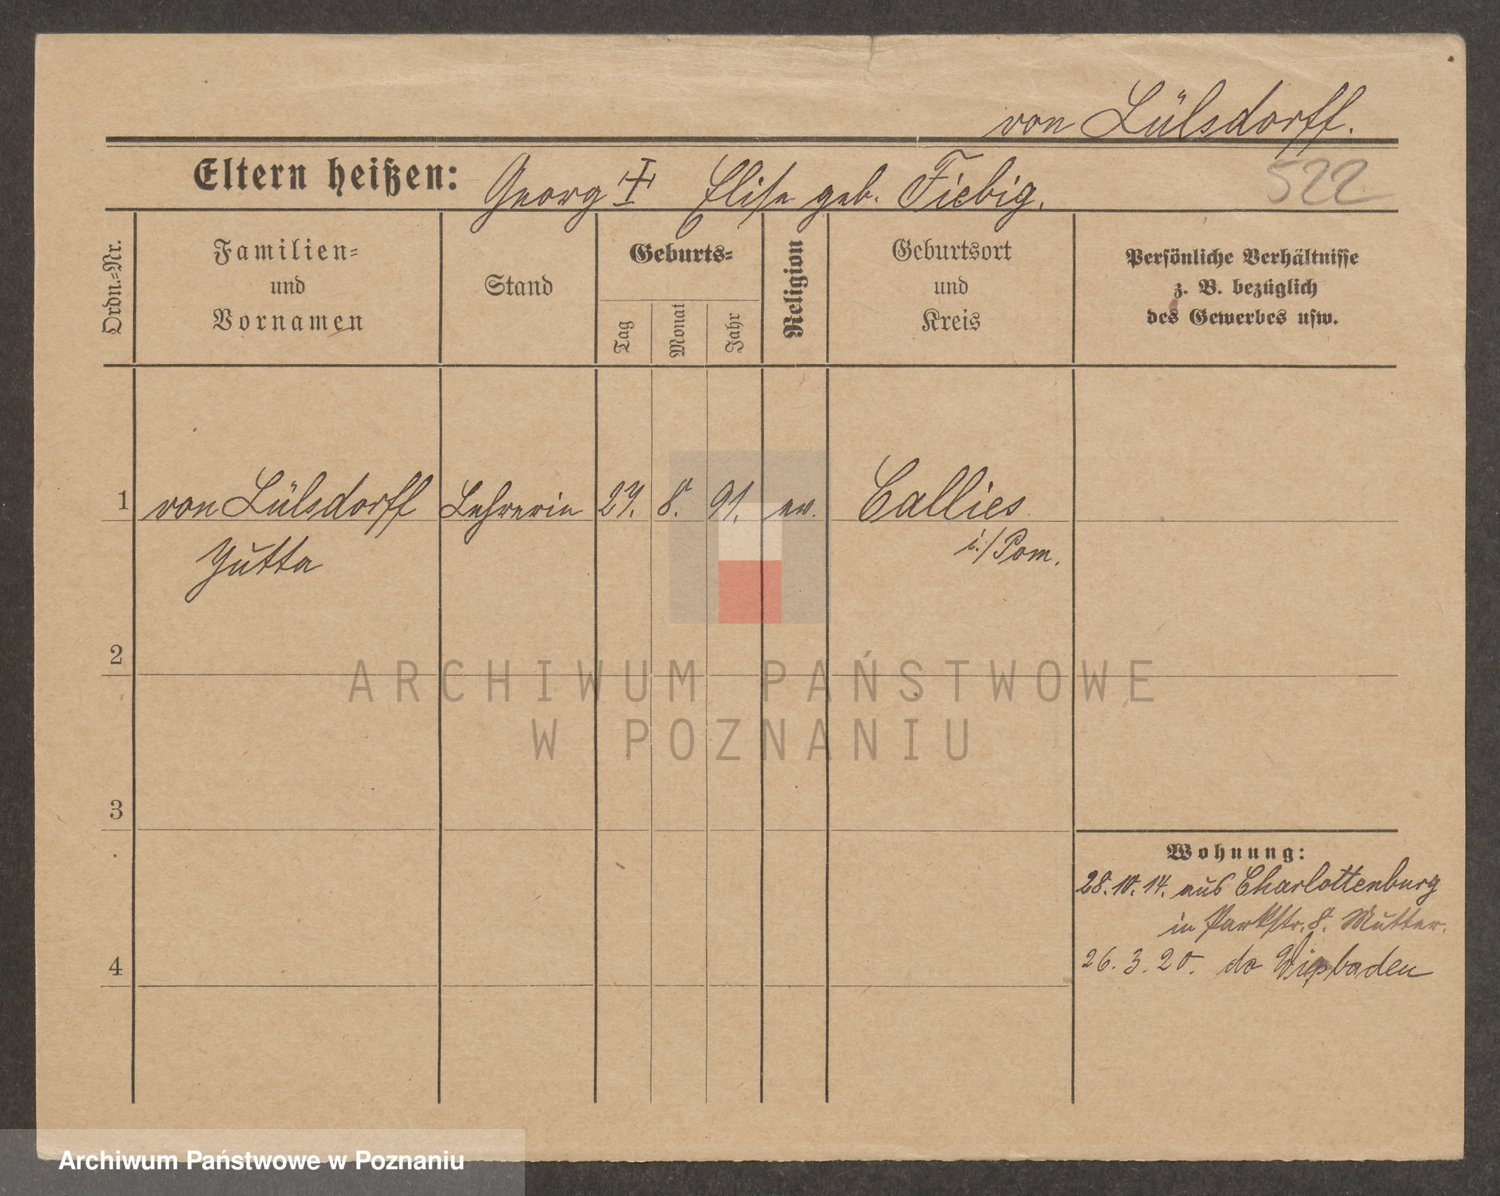 von Lülsdorff.
Eltern heißen: Georg ‡ Elise geb. Fiebig.
522
Ordn.-Nr.
Familien-
und
Vornamen
Stand
Geburts-
Tag
Monat
Jahr
Religion
Geburtsort
und
Kreis
Persönliche Verhältnisse
z. B. bezüglich
des Gewerbes usw.
1 von Lülsdorff Lehrerin 8. 91. ev. Callies
Jutta i./Pom.
2
3
4
Wohnung:
28.10.14. aus Charlottenburg
in Parkstr. 8. Mutter.
26.3.20. do Wiesbaden
ARCHIWUM PAŃSTWOWE
W POZNANIU
Archiwum Państwowe w Poznaniu